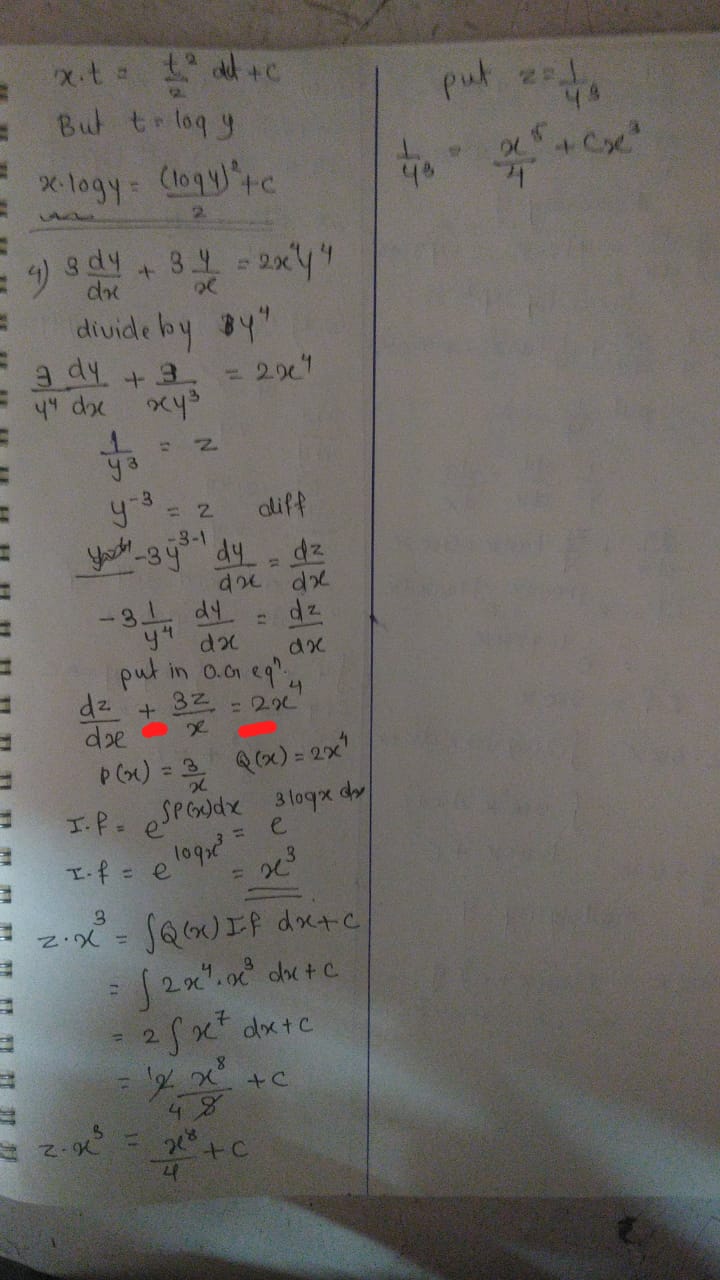 x.t = t²/2 dt + c
But t = log y
x.logy = (logy)²/2 + c
4) 3 dy/dx + 3 y/x = 2x⁴y⁴
divide by y⁴
3/y⁴ dy/dx + 3/xy³ = 2x⁴
1/y³ = z
y⁻³ = z diff
-3y⁻³⁻¹ dy/dx = dz/dx
-3 1/y⁴ dy/dx = dz/dx
put in o.G eqⁿ.
dz/dx + 3z/x = 2x⁴
p(x) = 3/x Q(x) = 2x⁴
I.f = e^∫P(x)dx = e^3logx dx
I.f = e^logx³ = x³
z.x³ = ∫Q(x) I.f dx + c
= ∫2x⁴.x³ dx + c
= 2∫x⁷ dx + c
= 2 x⁸/8 + c
z.x³ = x⁸/4 + c
put z = 1/y³
1/y³ = x⁵/4 + cx³